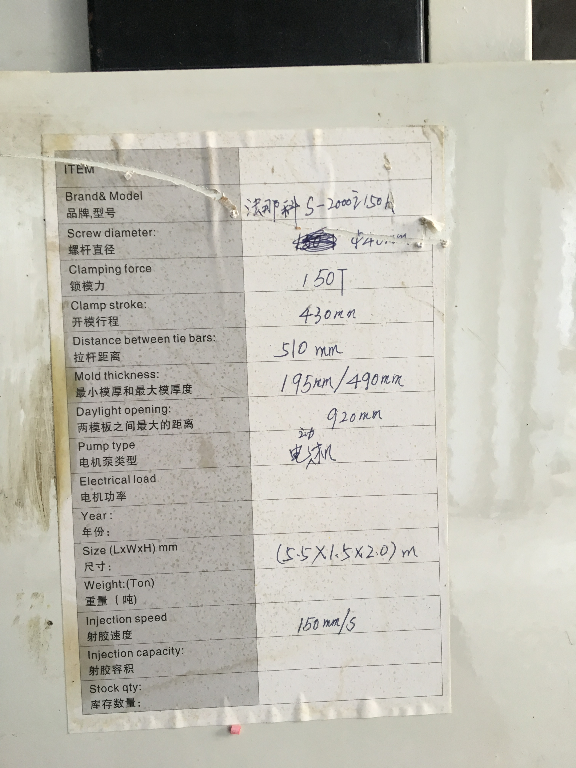 ITEM
Brand& Model
品牌,型号 法那科 S-2000i 150
Screw diameter:
螺杆直径
Clamping force
锁模力 150T
Clamp stroke:
开模行程 430mm
Distance between tie bars:
拉杆距离 510 mm
Mold thickness:
最小模厚和最大模厚度 195mm/490mm
Daylight opening:
两模板之间最大的距离 920mm
Pump type
电机泵类型
Electrical load
电机功率
Year :
年份:
Size (LxWxH) mm
尺寸: (5.5X1.5X2.0) m
Weight:(Ton)
重量 ( 吨)
Injection speed
射胶速度 150mm/s
Injection capacity:
射胶容积
Stock qty:
库存数量: